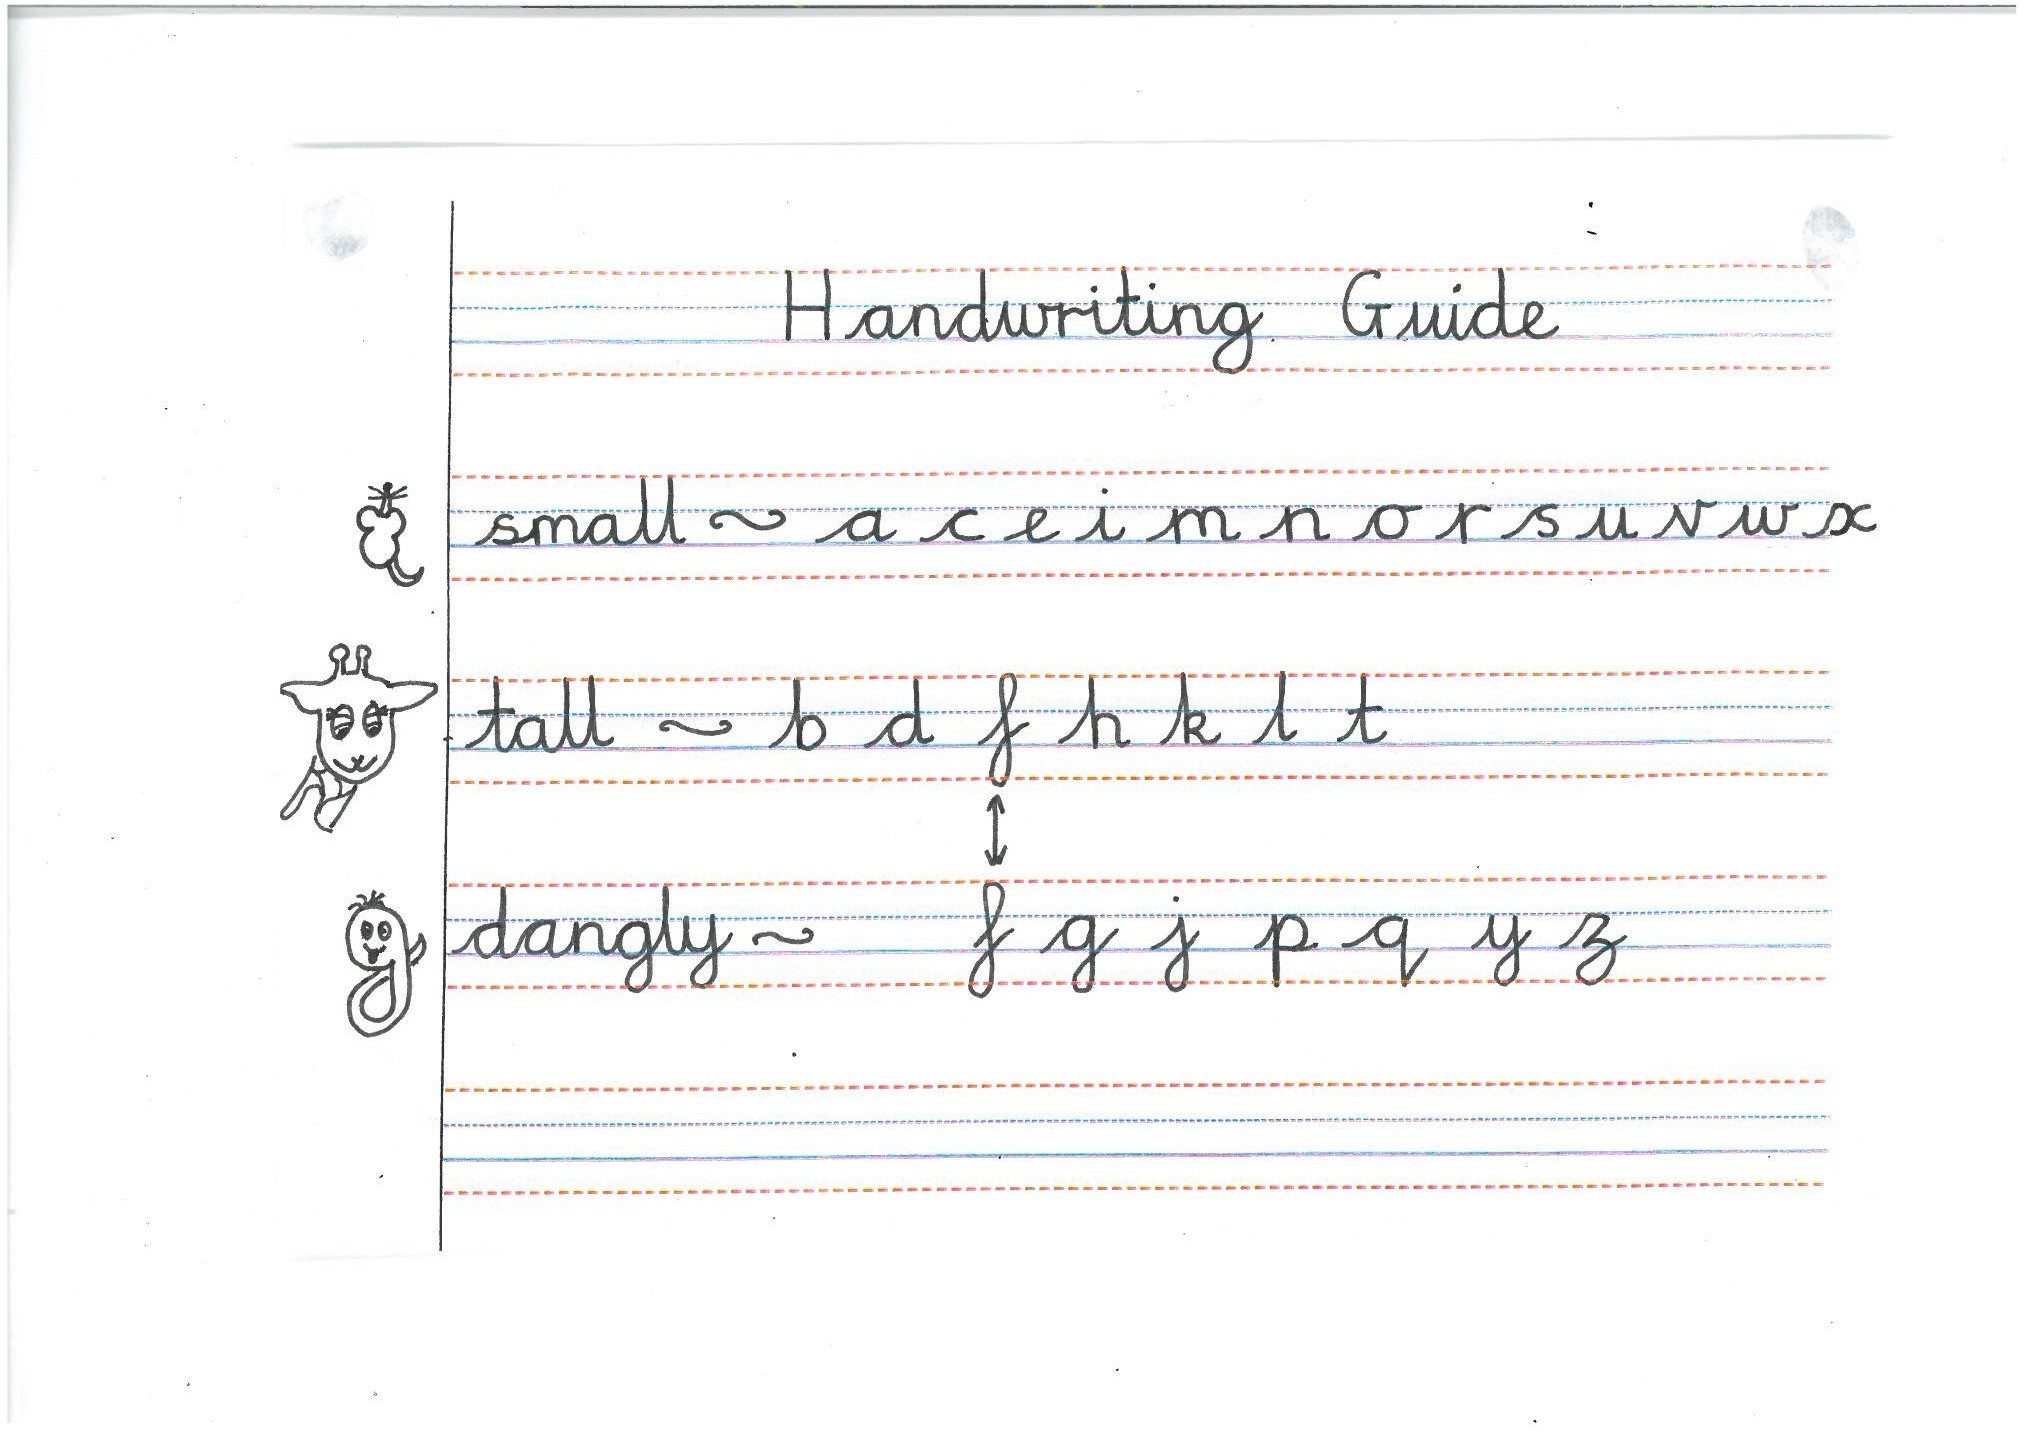 Handwriting Guide
small ~ a c e i m n o r s u v w x
tall ~ b d f h k l t
dangly ~ f g j p q y z